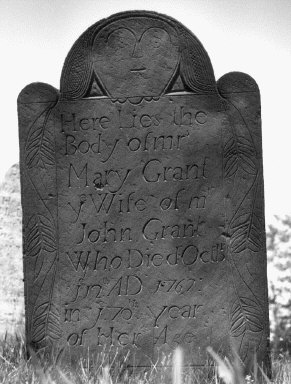 Here Lies the
Body of mr
Mary Grant
yͤ Wife of mr
John Grant
Who Died Octb
in AD 1767
in 70th year
of Her Age